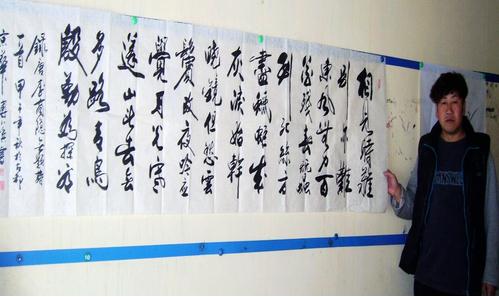 相見時難
別亦難
東風無力百
花殘春蠶
到死絲方
盡蠟炬成
灰淚始幹
曉鏡但愁雲
鬢改夜吟應
覺月光寒
蓬山此去無
多路青鳥
殷勤為探看
錄唐李商隱無題詩
一首 甲午年秋於
京華
10